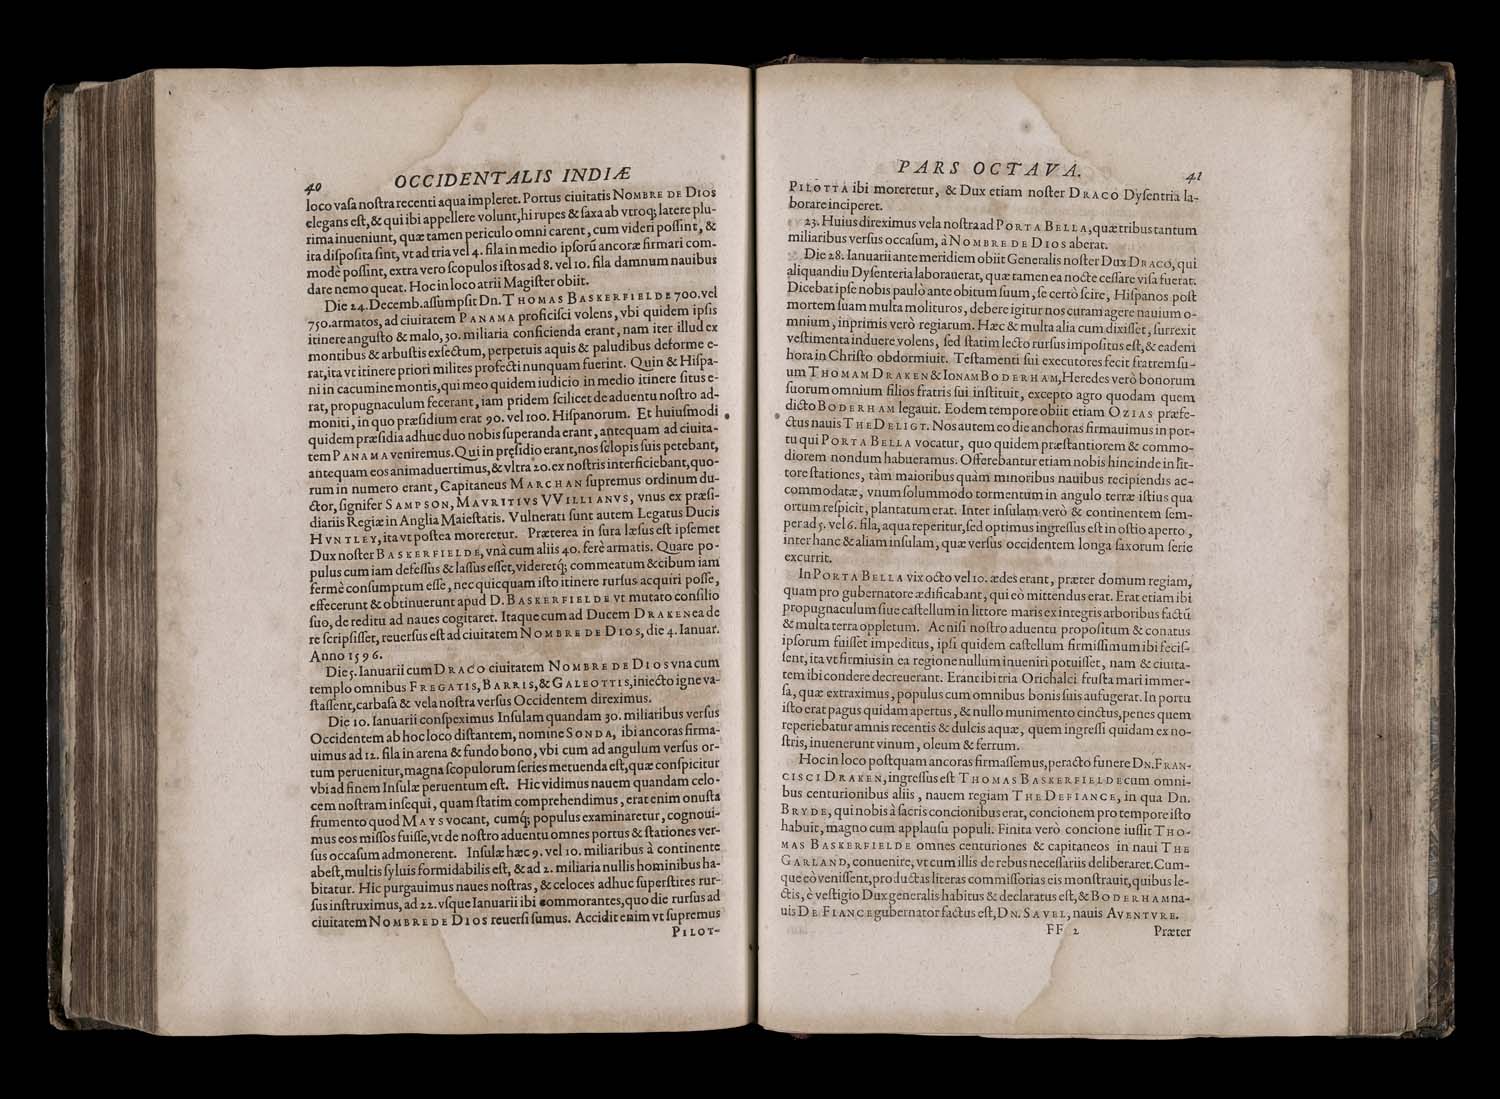 40 OCCIDENTALIS INDIÆ
loco vaſa noſtra recenti aqua impleret. Portus ciuitatis NOMBRE DE DIOS
elegans eſt, & qui ibi appellere volunt, hi rupes & ſaxa ab vtroq; latere plu-
rima inueniunt, quæ tamen periculo omni carent, cum videri poſſint, &
ita diſpoſita ſint, vt ad tria vel 4. fila in medio ipſorũ ancoræ firmari com-
modè poſſint, extra vero ſcopulos iſtos ad 8. vel 10. fila damnum nauibus
dare nemo queat. Hoc in loco atrii Magiſter obiit.
Die 24. Decemb. aſſumpſit Dn. THOMAS BASKERFIELDE 700. vel
750. armatos, ad ciuitatem PANAMA proficiſci volens, vbi quidem ipſis
itinere anguſto & malo, 30. miliaria conficienda erant, nam iter illud ex
montibus & arbuſtis exſectum, perpetuis aquis & paludibus deforme e-
rat, ita vt itinere priori milites profecti nunquam fuerint. Quin & Hiſpa-
ni in cacumine montis, qui meo quidem iudicio in medio itinere ſitus e-
rat, propugnaculum fecerant, iam pridem ſcilicet de aduentu noſtro ad-
moniti, in quo præſidium erat 90. vel 100. Hiſpanorum. Et huiuſmodi
quidem præſidia adhuc duo nobis ſuperanda erant, antequam ad ciuita-
tem PANAMA veniremus. Qui in pręſidio erant, nos ſclopis ſuis petebant,
antequam eos animaduertimus, & vltra 20. ex noſtris interficiebant, quo-
rum in numero erant, Capitaneus MARCHAN ſupremus ordinum du-
ctor, ſignifer SAMPSON, MAVRITIVS VVILLIANVS, vnus ex præſi-
diariis Regiæ in Anglia Maieſtatis. Vulnerati ſunt autem Legatus Ducis
HVNTLEY, ita vt poſtea moreretur. Præterea in ſura læſus eſt ipſemet
Dux noſter BASKERFIELDE, vnà cum aliis 40. ferè armatis. Quare po-
pulus cum iam defeſſus & laſſus eſſet, videretq; commeatum & cibum iam
fermè conſumptum eſſe, nec quicquam iſto itinere rurſus acquiri poſſe,
effecerunt & obtinuerunt apud D. BASKERFIELDE vt mutato conſilio
ſuo, de reditu ad naues cogitaret. Itaque cum ad Ducem DRAKEN ea de
re ſcripſiſſet, reuerſus eſt ad ciuitatem NOMBRE DE DIOS, die 4. Ianuar.
Anno 1596.
Die 5. Ianuarii cum DRACO ciuitatem NOMBRE DE DIOS vna cum
templo omnibus FREGATIS, BARRIS, & GALEOTTIS, iniecto igne va-
ſtaſſent, carbaſa & vela noſtra verſus Occidentem direximus.
Die 10. Ianuarii conſpeximus Inſulam quandam 30. miliaribus verſus
Occidentem ab hoc loco diſtantem, nomine SONDA, ibi ancoras firma-
uimus ad 12. fila in arena & fundo bono, vbi cum ad angulum verſus or-
tum peruenitur, magna ſcopulorum ſeries metuenda eſt, quæ conſpicitur
vbi ad finem Inſulæ peruentum eſt. Hic vidimus nauem quandam celo-
cem noſtram inſequi, quam ſtatim comprehendimus, erat enim onuſta
frumento quod MAYS vocant, cumq́; populus examinaretur, cognoui-
mus eos miſſos fuiſſe, vt de noſtro aduentu omnes portus & ſtationes ver-
ſus occaſum admonerent. Inſulæ hæc 9. vel 10. miliaribus à continente
abeſt, multis ſyluis formidabilis eſt, & ad 2. miliaria nullis hominibus ha-
bitatur. Hic purgauimus naues noſtras, & celoces adhuc ſuperſtites rur-
ſus inſtruximus, ad 22. vſque Ianuarii ibi commorantes, quo die rurſus ad
ciuitatem NOMBRE DE DIOS reuerſi ſumus. Accidit enim vt ſupremus
PILOT-
PARS OCTAVA. 41
PILOTTA ibi moreretur, & Dux etiam noſter DRACO Dyſentria la-
borare inciperet.
23. Huius direximus vela noſtra ad PORTA BELLA, quæ tribus tantum
miliaribus verſus occaſum, à NOMBRE DE DIOS aberat.
Die 28. Ianuarii ante meridiem obiit Generalis noſter Dux DRACO, qui
aliquandiu Dyſenteria laborauerat, quæ tamen ea nocte ceſſare viſa fuerat.
Dicebat ipſe nobis paulò ante obitum ſuum, ſe certò ſcire, Hiſpanos poſt
mortem ſuam multa molituros, debere igitur nos curam agere nauium o-
mnium, inprimis verò regiarum. Hæc & multa alia cum dixiſſet, ſurrexit
veſtimenta induere volens, ſed ſtatim lecto rurſus impoſitus eſt, & eadem
hora in Chriſto obdormiuit. Teſtamenti ſui executores fecit fratrem ſu-
um THOMAM DRAKEN & IONAM BODERHAM, Heredes verò bonorum
ſuorum omnium filios fratris ſui inſtituit, excepto agro quodam quem
dicto BODERHAM legauit. Eodem tempore obiit etiam OZIAS præfe-
ctus nauis THE DELIGT. Nos autem eo die anchoras firmauimus in por-
tu qui PORTA BELLA vocatur, quo quidem præſtantiorem & commo-
diorem nondum habueramus. Offerebantur etiam nobis hinc inde in lit-
tore ſtationes, tàm maioribus quàm minoribus nauibus recipiendis ac-
commodatæ, vnum ſolummodo tormentum in angulo terræ iſtius qua
ortum reſpicit, plantatum erat. Inter inſulam verò & continentem ſem-
per ad 5. vel 6. fila, aqua reperitur, ſed optimus ingreſſus eſt in oſtio aperto,
inter hanc & aliam inſulam, quæ verſus occidentem longa ſaxorum ſerie
excurrit.
In PORTA BELLA vix octo vel 10. ædes erant, præter domum regiam,
quam pro gubernatore ædificabant, qui eò mittendus erat. Erat etiam ibi
propugnaculum ſiue caſtellum in littore maris ex integris arboribus factũ
& multa terra oppletum. Ac niſi noſtro aduentu propoſitum & conatus
ipſorum fuiſſet impeditus, ipſi quidem caſtellum firmiſſimum ibi feciſ-
ſent, ita vt firmius in ea regione nullum inueniri potuiſſet, nam & ciuita-
tem ibi condere decreuerant. Erant ibi tria Orichalci fruſta mari immer-
ſa, quæ extraximus, populus cum omnibus bonis ſuis aufugerat. In portu
iſto erat pagus quidam apertus, & nullo munimento cinctus, penes quem
reperiebatur amnis recentis & dulcis aquæ, quem ingreſſi quidam ex no-
ſtris, inuenerunt vinum, oleum & ferrum.
Hoc in loco poſtquam ancoras firmaſſemus, peracto funere DN. FRAN-
CISCI DRAKEN, ingreſſus eſt THOMAS BASKERFIELDE cum omni-
bus centurionibus aliis, nauem regiam THE DEFIANCE, in qua Dn.
BRYDE, qui nobis à ſacris concionibus erat, concionem pro tempore iſto
habuit, magno cum applauſu populi. Finita verò concione iuſſit THO-
MAS BASKERFIELDE omnes centuriones & capitaneos in naui THE
GARLAND, conuenire, vt cum illis de rebus neceſſariis deliberaret. Cum-
que eò veniſſent, productas literas commiſſorias eis monſtrauit, quibus le-
ctis, è veſtigio Dux generalis habitus & declaratus eſt, & BODERHAM na-
uis DE FIANCE gubernator factus eſt, DN. SAVEL, nauis AVENTVRE.
FF 2 Præter